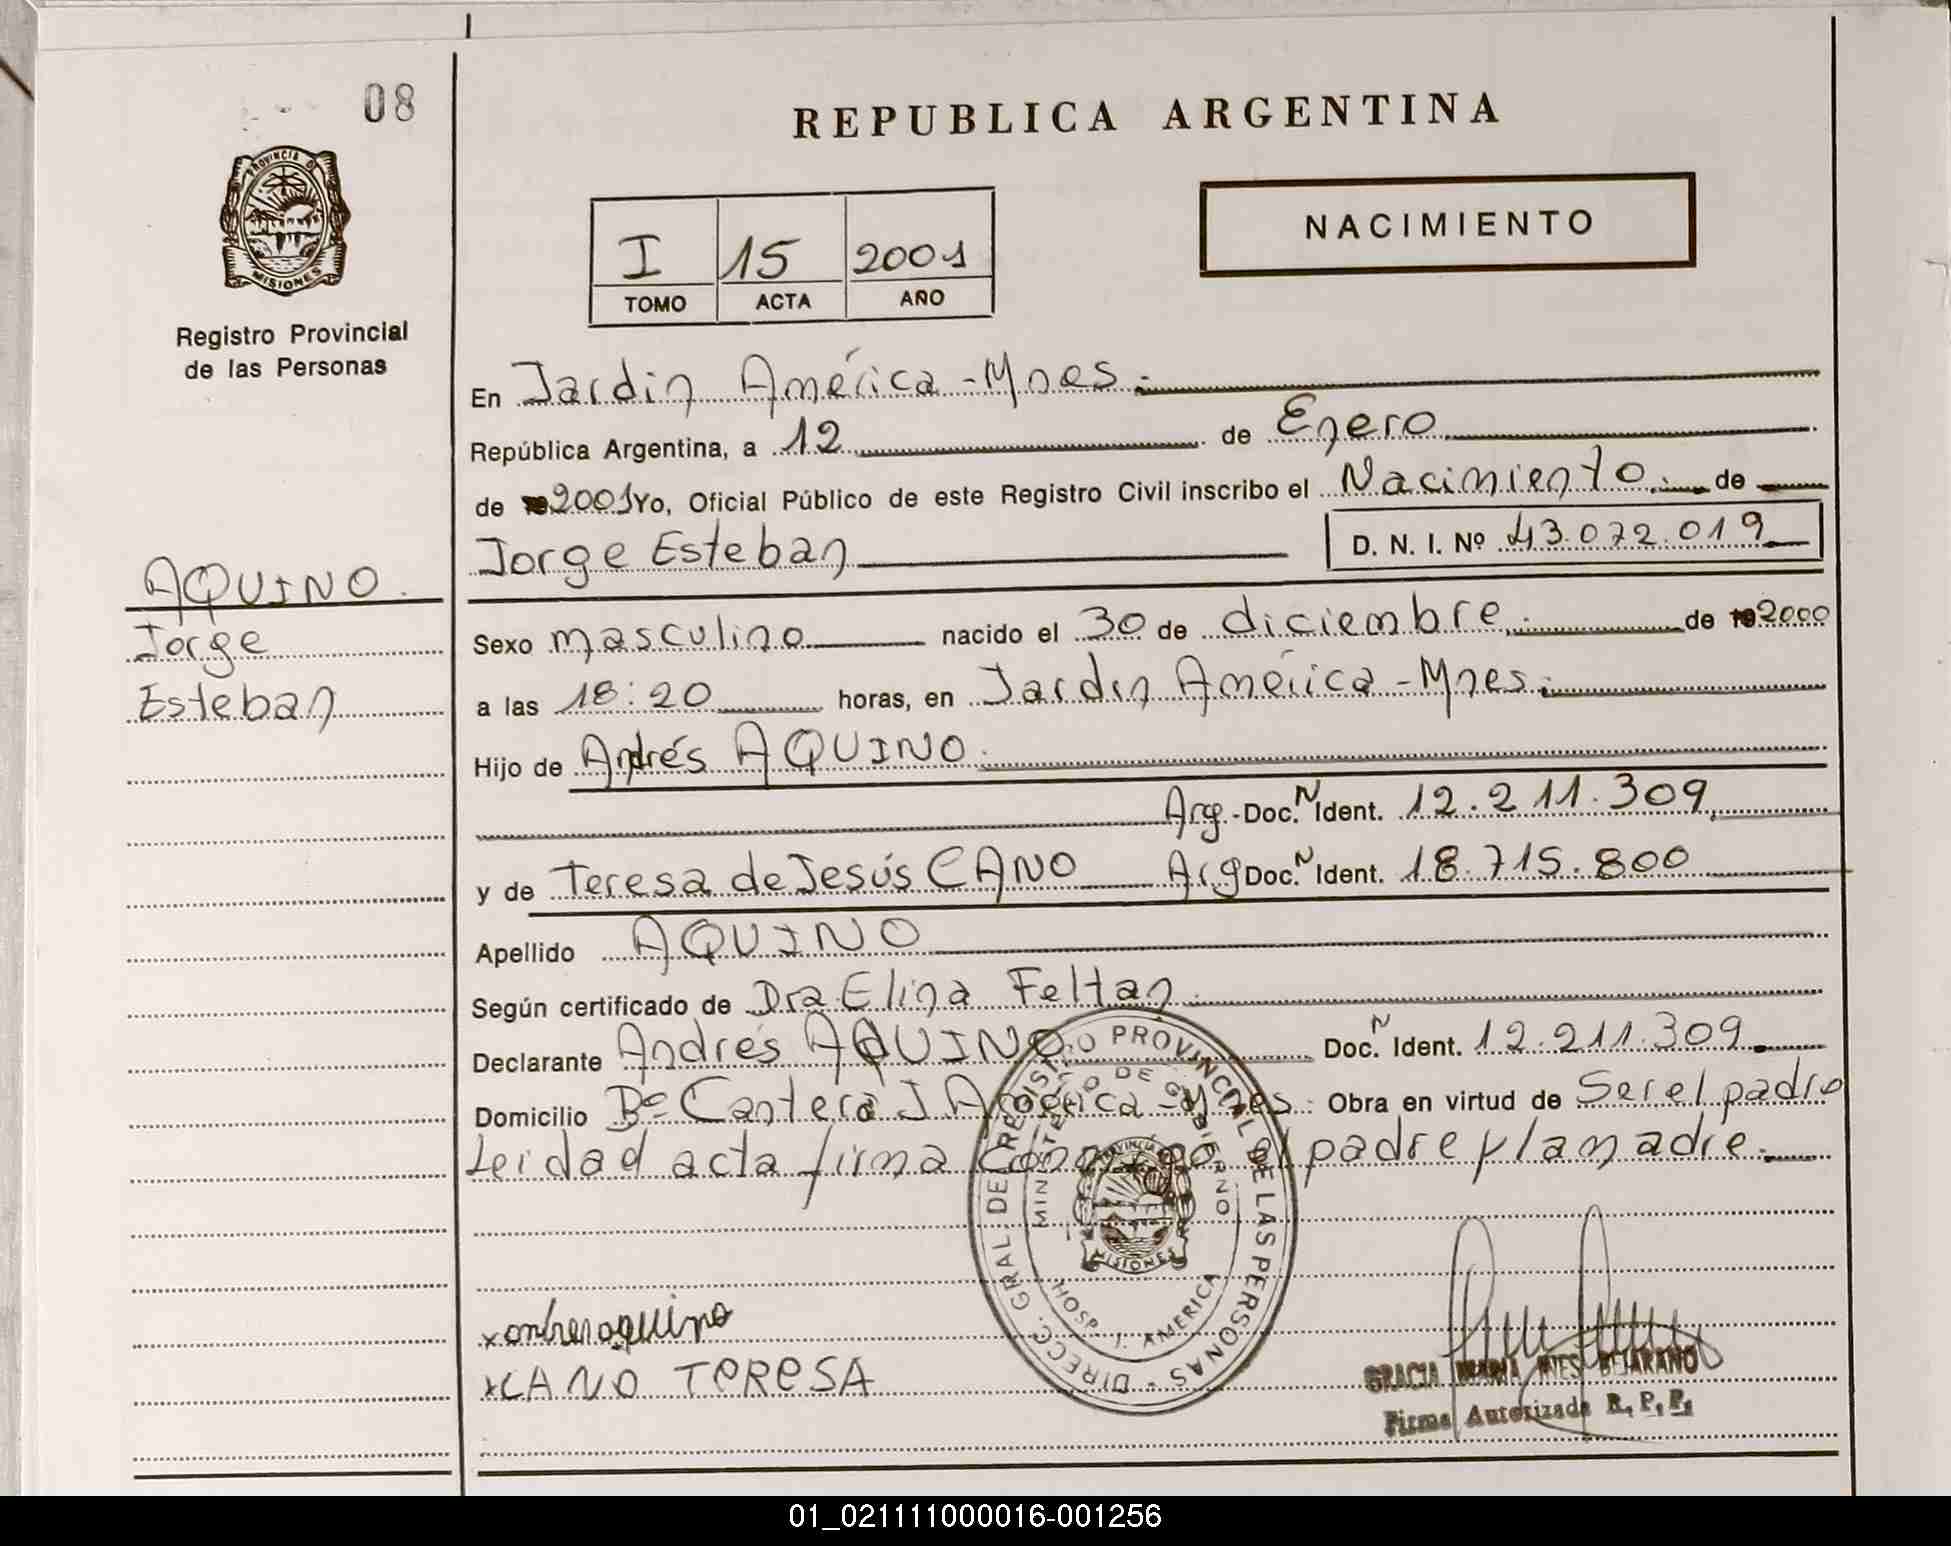 08
PROVINCIA DE
MISIONES
Registro Provincial
de las Personas
AQUINO.
Jorge
Esteban
REPUBLICA ARGENTINA
I 15 2001
TOMO ACTA AÑO
NACIMIENTO
En Jardin América - Mnes.
República Argentina, a 12 de Enero
de 2001 Yo, Oficial Público de este Registro Civil inscribo el Nacimiento. de
Jorge Esteban D. N. I. Nº 43.072.019
Sexo masculino nacido el 30 de diciembre. de 2000
a las 18:20 horas, en Jardin América - Mnes.
Hijo de Andrés AQUINO.
Arg. Doc. N Ident. 12.211.309
y de Teresa de Jesús CANO Arg Doc. N Ident. 18.715.800
Apellido AQUINO
Según certificado de Dra Elina Feltan
Declarante Andrés AQUINO Doc. N Ident. 12.211.309
Domicilio Bº Cantera J América - Mnes. Obra en virtud de Ser el padre
Leida el acta firma conmigo el padre y la madre.
DIRECC. GRAL. DE REGISTRO PROVINCIAL DE LAS PERSONAS -
MINISTERIO DE GOBIERNO
PROVINCIA
MISIONES
HOSP. J. AMERICA
x aquino
x CANO TERESA
GRACIA MARIA INES BEJARANO
Firma Autorizada R. P. P.
01_021111000016-001256